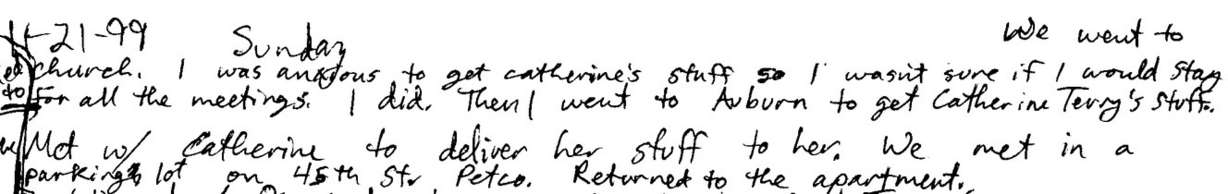 11-21-99 Sunday We went to
church. I was anxious to get catherine's stuff so I wasn't sure if I would stay
for all the meetings. I did. Then I went to Auburn to get Catherine Terry's stuff.
Met w/ Catherine to deliver her stuff to her. We met in a
parking lot on 45th Str Petco. Returned to the apartment.